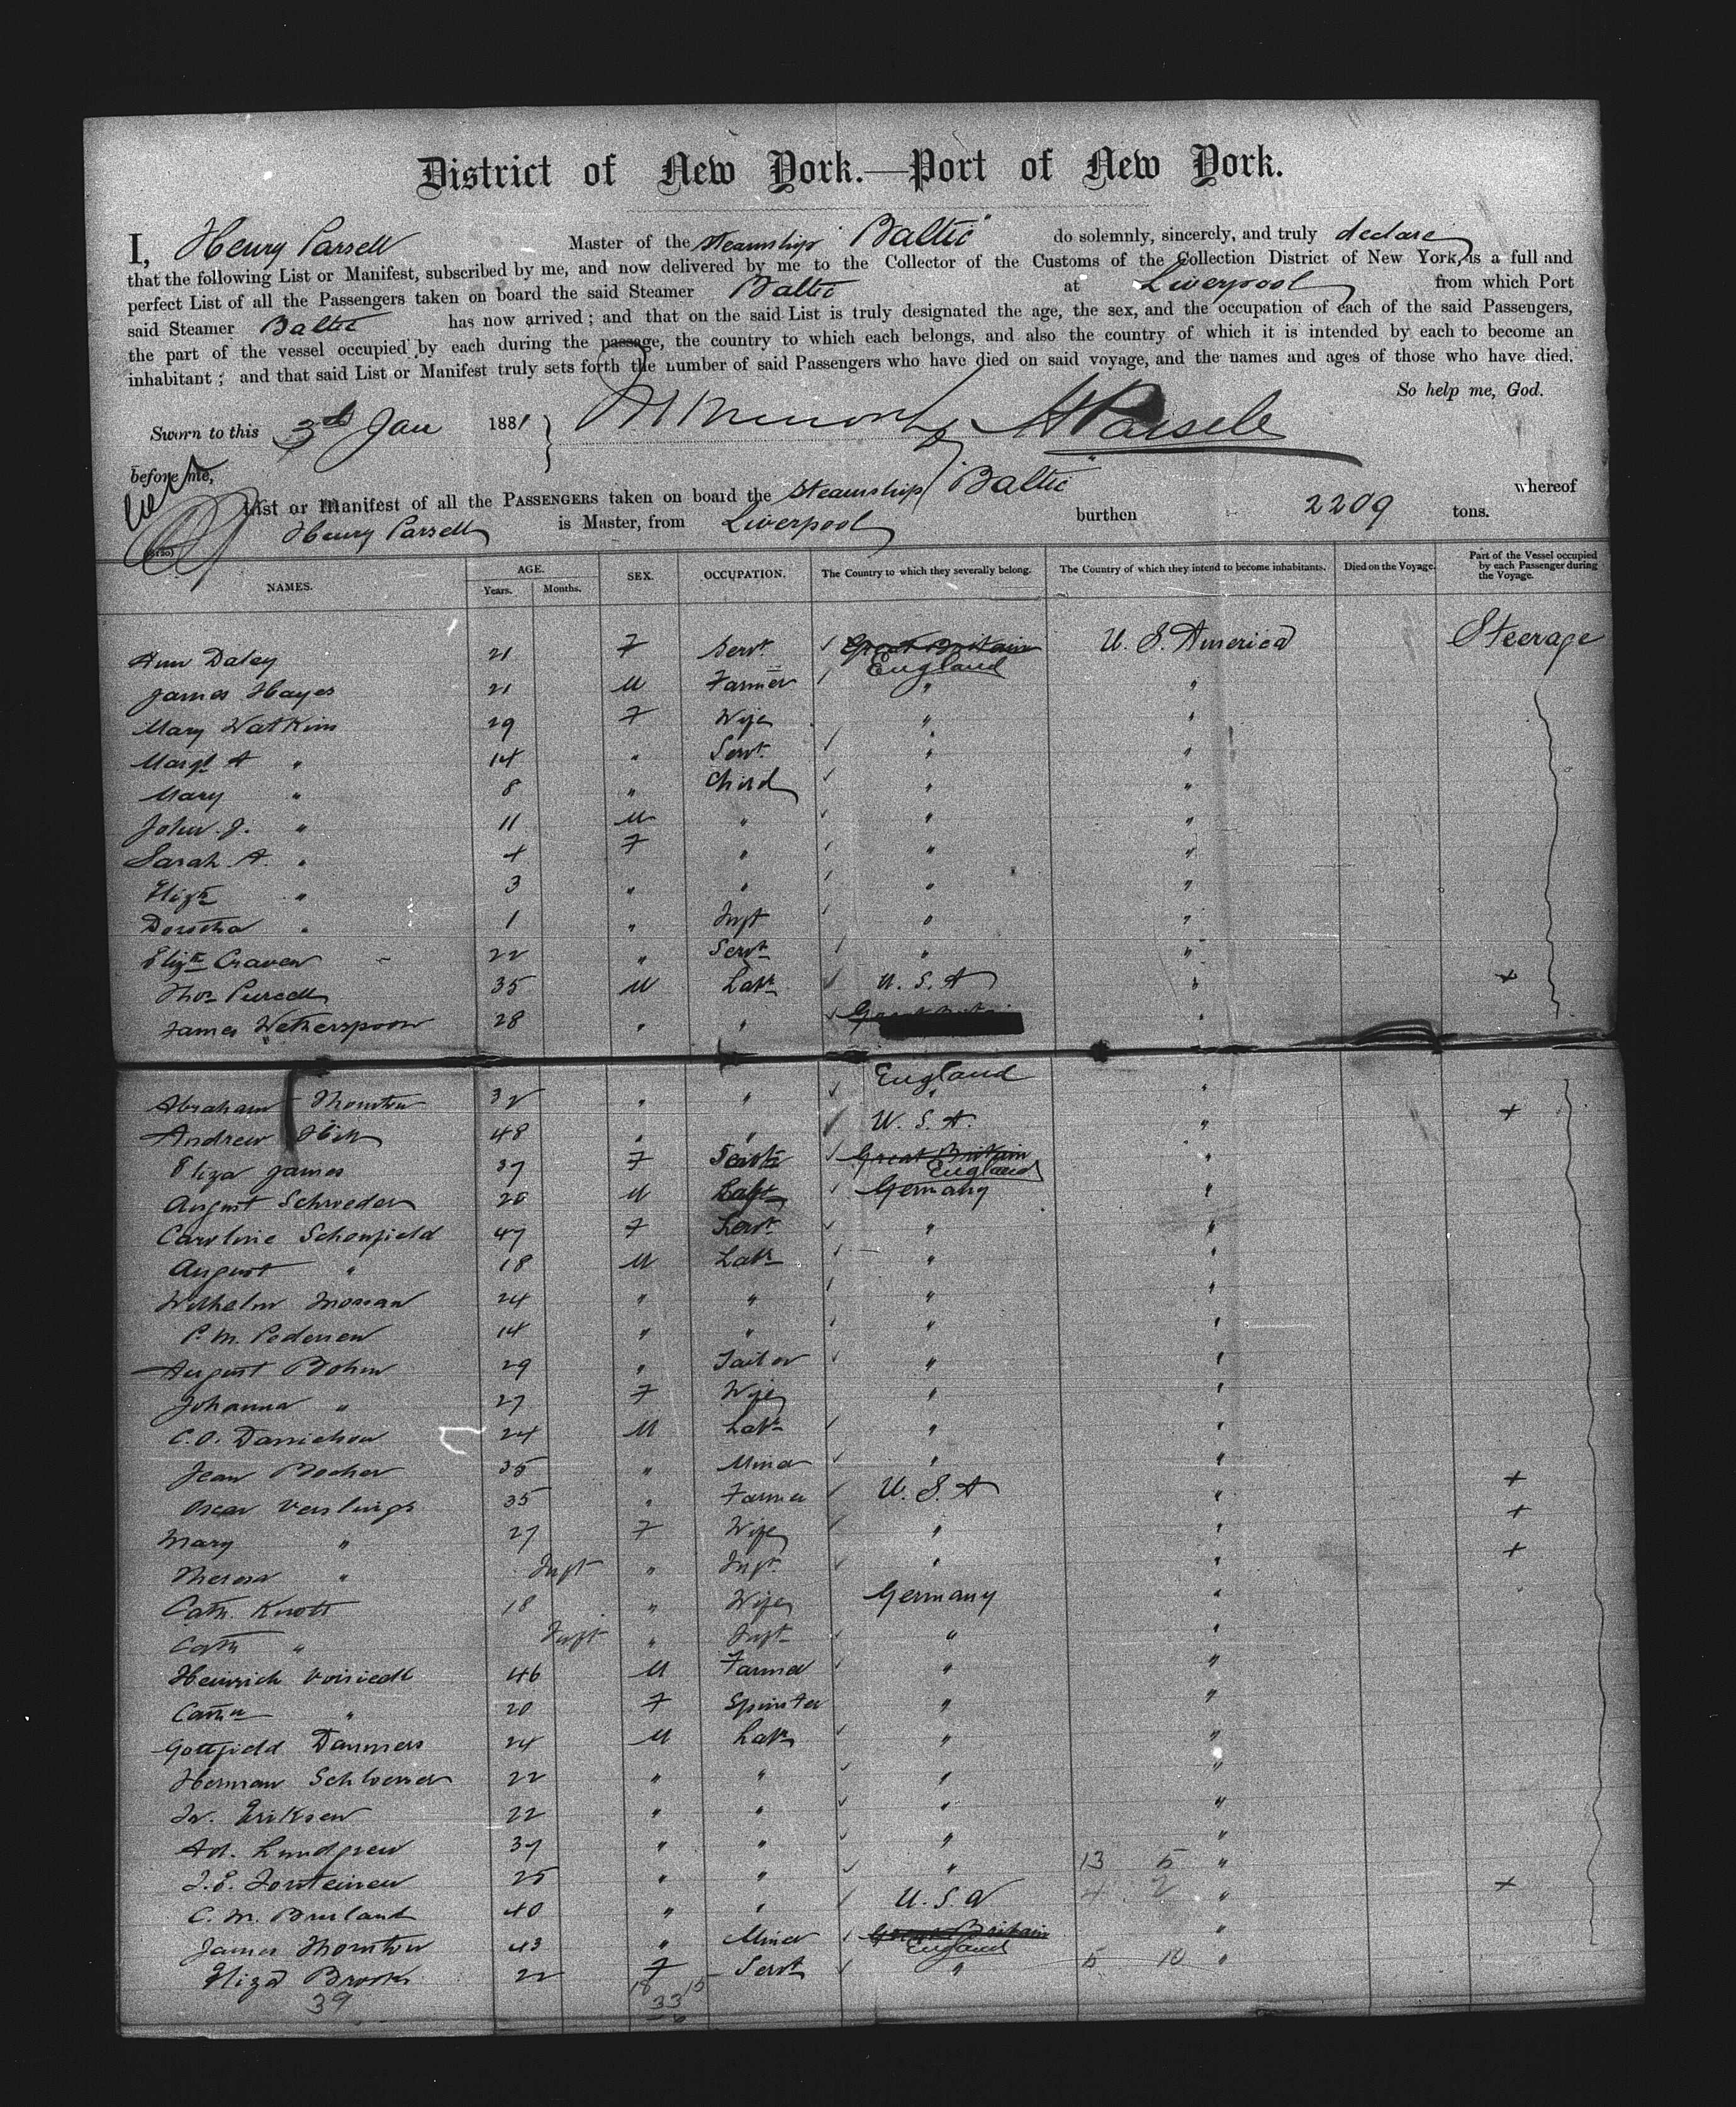 District of New York.—Port of New York.
I, Henry Parsell Master of the steamship "Baltic" do solemnly, sincerely, and truly declare
that the following List or Manifest, subscribed by me, and now delivered by me to the Collector of the Customs of the Collection District of New York, is a full and
perfect List of all the Passengers taken on board the said Steamer Baltic at Liverpool from which Port
said Steamer Baltic has now arrived; and that on the said List is truly designated the age, the sex, and the occupation of each of the said Passengers,
the part of the vessel occupied by each during the passage, the country to which each belongs, and also the country of which it is intended by each to become an
inhabitant; and that said List or Manifest truly sets forth the number of said Passengers who have died on said voyage, and the names and ages of those who have died.
So help me, God.
Sworn to this 3d Jan 1881 } H Parsell
before me,
List or Manifest of all the PASSENGERS taken on board the steamship Baltic whereof
Henry Parsell is Master, from Liverpool burthen 2209 tons.
NAMES. AGE. Years. Months. SEX. OCCUPATION. The Country to which they severally belong. The Country of which they intend to become inhabitants. Died on the Voyage. Part of the Vessel occupied by each Passenger during the Voyage.
Ann Daley 21 F Servt Great Britain England U. S. America Steerage
James Hayes 21 M Farmer " "
Mary Watkins 29 F Wife " "
Margt A " 14 " Servt " "
Mary " 8 " Child " "
John. J. " 11 M " " "
Sarah A. " 4 F " " "
Elizth " 3 " " " "
Dorothea " 1 " Inft " "
Elizth Craven 22 " Servt " "
Thos Purcell 35 M Labr U. S. A " +
James Wetherspoon 28 " " Great Britain "
England
Abraham Thornton 32 " " " "
Andrew 48 " " U. S. A. " +
Eliza James 37 F Servt Great Britain England "
August Schroeder 20 M Labr Germany "
Caroline Schonfield 47 F Servt " "
August " 18 M Labr " "
Wilhelm 24 " " " "
P. M. Pedersen 14 " " " "
August Bohm 29 " Tailor " "
Johanna " 27 F Wife " "
C. O. Danielson 24 M Labr " "
Jean Bocher 35 " Miner " "
Oscar 35 " Farmer U. S. A " +
Mary " 27 F Wife " " +
Theresa " Inft " Inft " " +
Cath. Knott 18 " Wife Germany "
Cath " Inft " Inft " "
Heinrich 46 M Farmer " "
Cathn " 20 F Spinster " "
Gottfield Dammers 24 M Labr " "
Herman 22 " " " "
Eriksen 22 " " " "
Ad. Lundgren 37 " " " "
J. E. 25 " " " 13 5 "
C. M. Bruland 40 " " U. S. A 4 2 " +
James Thornton 43 " Miner Great Britain England "
Eliza Brooks 22 F Servt " 5 10 "
39 18 15
33